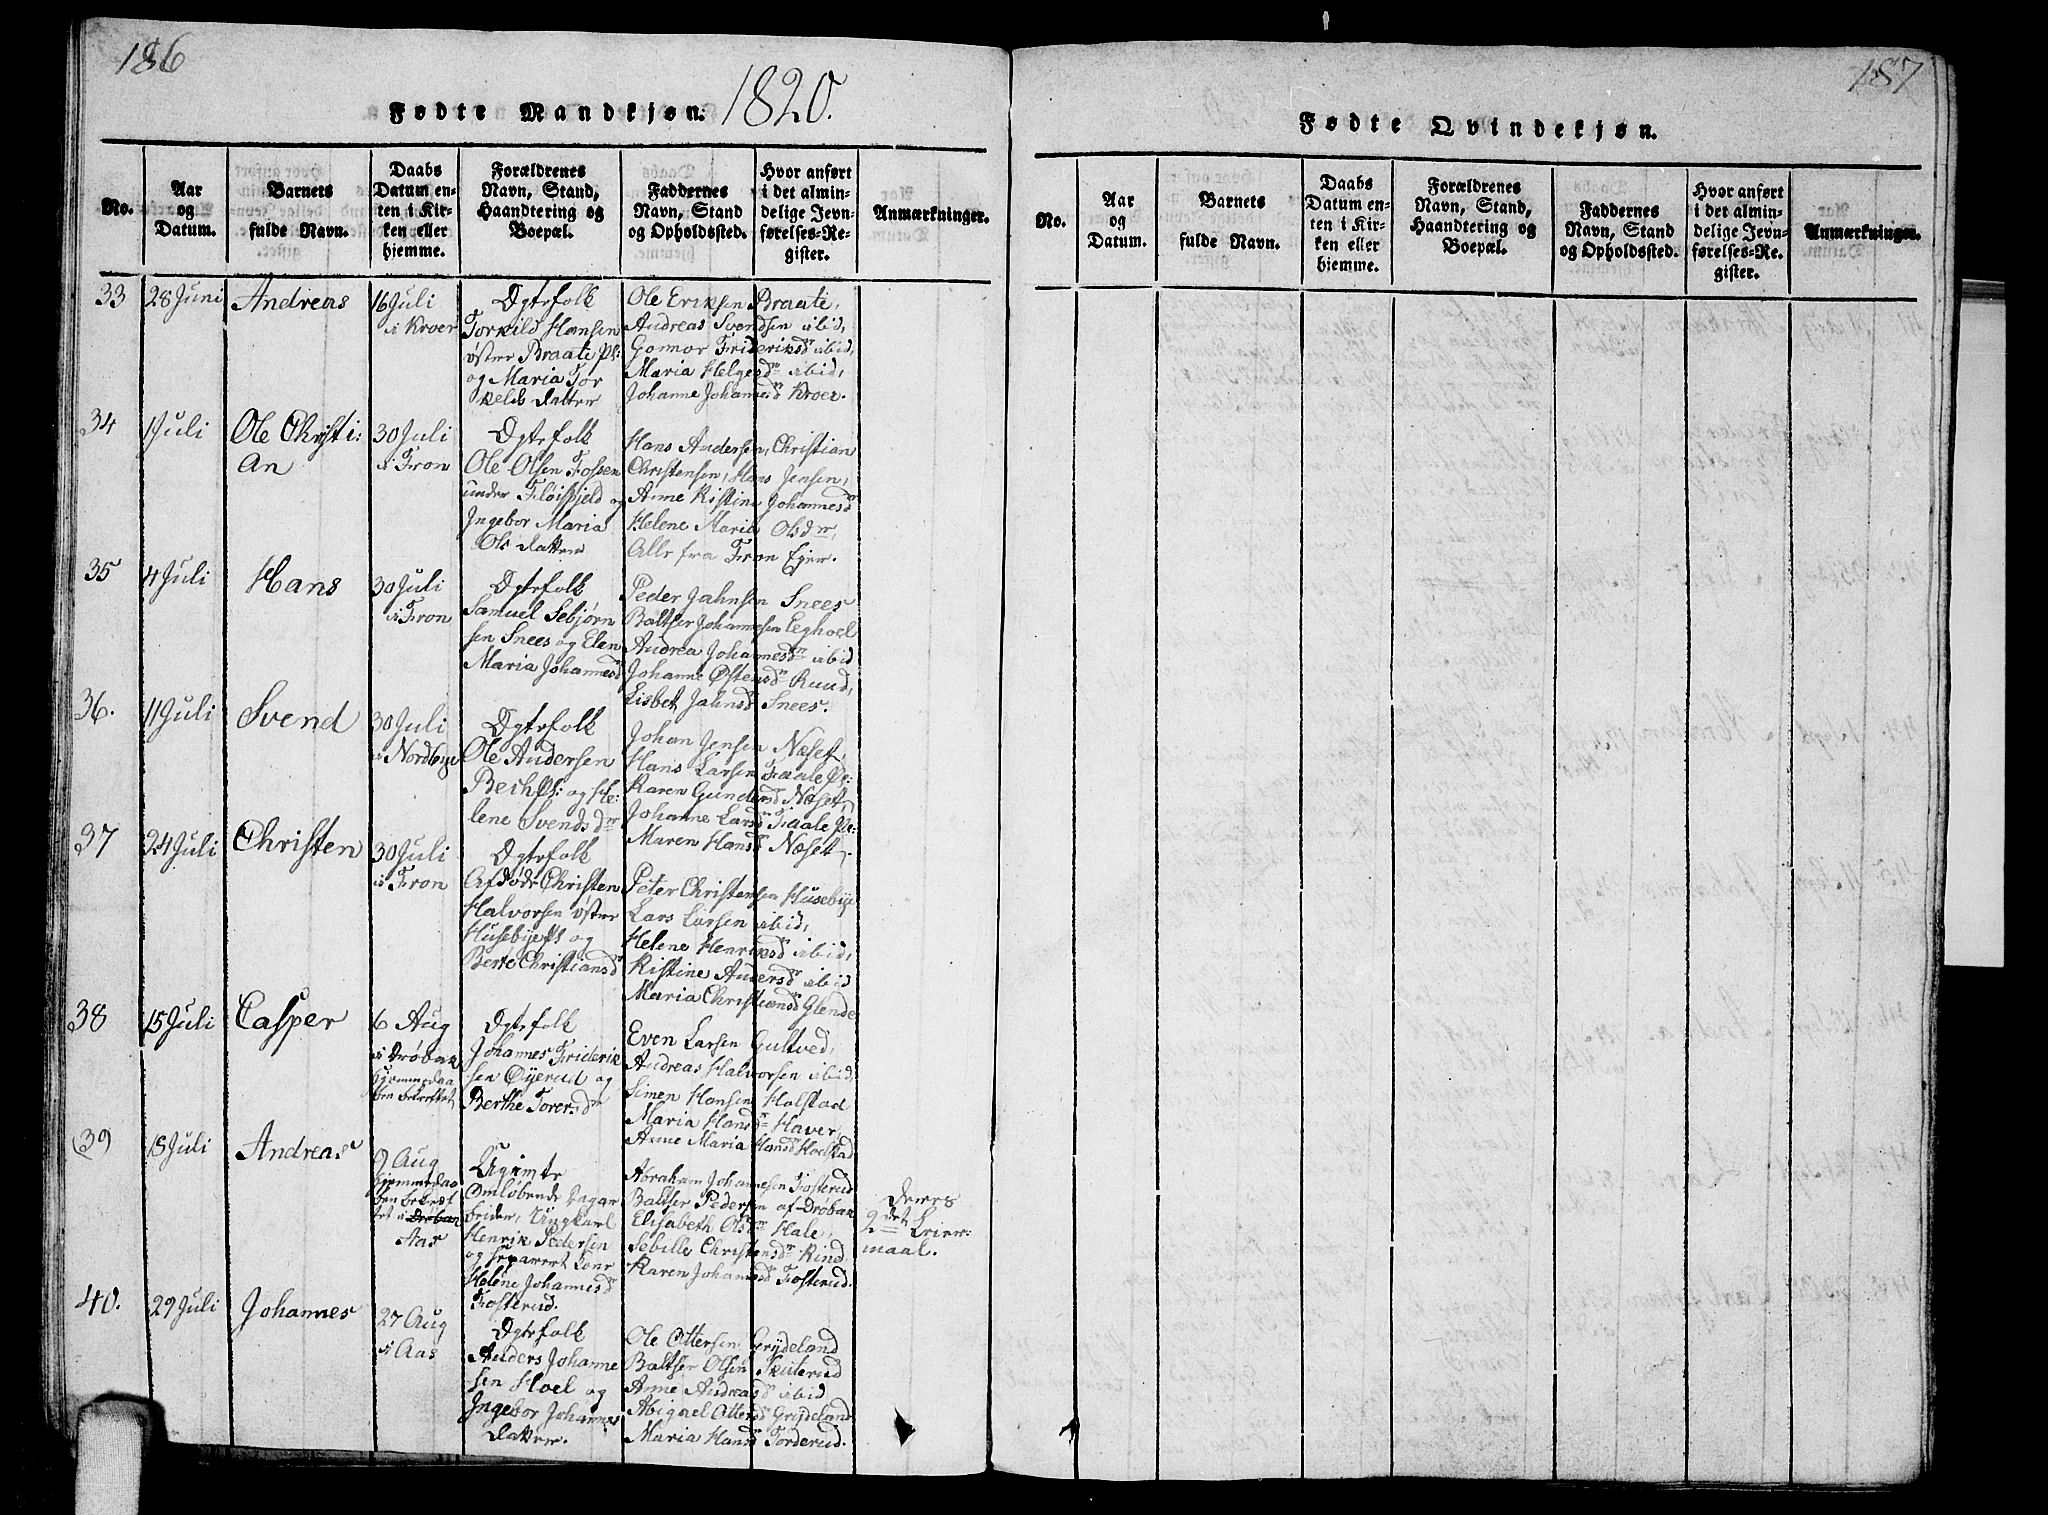 186
1820.
Fødte Mandkjøn.
No.
Aar
og
Datum.
Barnets
fulde Navn.
Daabs
Datum en-
ten i Kir-
ken eller
hjemme.
Forældrenes
Navn, Stand,
Haandtering og
Boepæl.
Faddernes
Navn, Stand
og Opholdssted.
Hvor anført
i det almin-
delige Jevn-
førelses-Re-
gister.
Anmærkninger.
33
28 Juni
Andreas
16 Juli
i Kroer
Ægtefolk
Torkild Hansen
østre Braate Pl:
og Maria Tor
kelds datter
Ole Eriksen Braate,
Andreas Svendsen ibid,
Gonnor Frideriksd ibid,
Maria Helgesdr ibid,
Johanne Johannesd Kroer.
34
1 Juli
Ole Christi:
an
30 Juli
i Fron
Ægtefolk
Ole Olsen Fossen
under Fløisjeld og
Ingebor Maria
Ols datter
Hans Andersen, Christian
Christensen, Hans Jensen,
Anne Kistine Johannesdr
Helene Maria Olsdr,
Alle fra Fron Ejer.
35
4 Juli
Hans
30 Juli
i Fron
Ægtefolk
Samuel Sebjørn
sen Snees og Elen
Maria Johannesd
Peder Jahnsen Snees
Baltser Johannesen Eeghoel
Andrea Johannesdr ibid
Johanne Østensdr Ruud,
Lisbet Jahnsd Snees.
36.
11 Juli
Svend
30 Juli
i Nordbye
Ægtefolk
Ole Andersen
Bechpl: og He:
lene Svendsdr
Johan Jensen Næset,
Hans Larsen Faale Pl:
Karen Gundersd Næset,
Johanne Larsd Faale Pl:
Maren Hansd Næset.
37
24 Juli
Christen
30 Juli
i Fron
Ægtefolk
Afdøde Christen
Halvorsen østre
Husebyepl og
Berte Christiansd
Peter Christensen Husebye
Lars Larsen ibid,
Helene Henriksd ibid,
Kistine Andersdr ibid
Maria Christiansd Glende
38
15 Juli
Casper
6 Aug
i Drøbak
hjemmedaa
ben bekræftet
Ægtefolk
Johannes Friderik
sen Øyerud og
Berthe Toresdr
Even Larsen Gultved,
Andreas Halvorsen ibid,
Simen Hansen Holstad
Maria Hansdr Haver,
Anne Maria Hansd Holstad
39
18 Juli
Andreas
9 Aug
hjemmedaa
ben bekræf
tet i Drøbak
Aas
Ugimte
Omløbende
Ungkarl
Henrik Pedersen
og separeret Kone
Helene Johannesd
Fosterud.
Abraham Johannesen Fosterud
Baltser Pedersen af Drøbak
Elisabeth Olsdr Hale,
Sebille Christensdr Rind
Karen Johannesd Fosterud.
deres
2det Leier:
maal.
40.
29 Juli
Johannes
27 Aug
i Aas
Ægtefolk
Anders Johanne
sen Hoel og
Ingebor Johannes
datter.
Ole Ottersen Grydeland
Baltser Olsen Skuterud
Anne Andreasd ibid
Abigael Ottersd Grydeland
Maria Hansd Torderud.
187
Fødte Qvindekjøn.
No.
Aar
og
Datum.
Barnets
fulde Navn.
Daabs
Datum en-
ten i Kir-
ken eller
hjemme.
Forældrenes
Navn, Stand,
Haandtering og
Boepæl.
Faddernes
Navn, Stand
og Opholdssted.
Hvor anført
i det almin-
delige Jevn-
førelses-Re-
gister.
Anmærkninger.